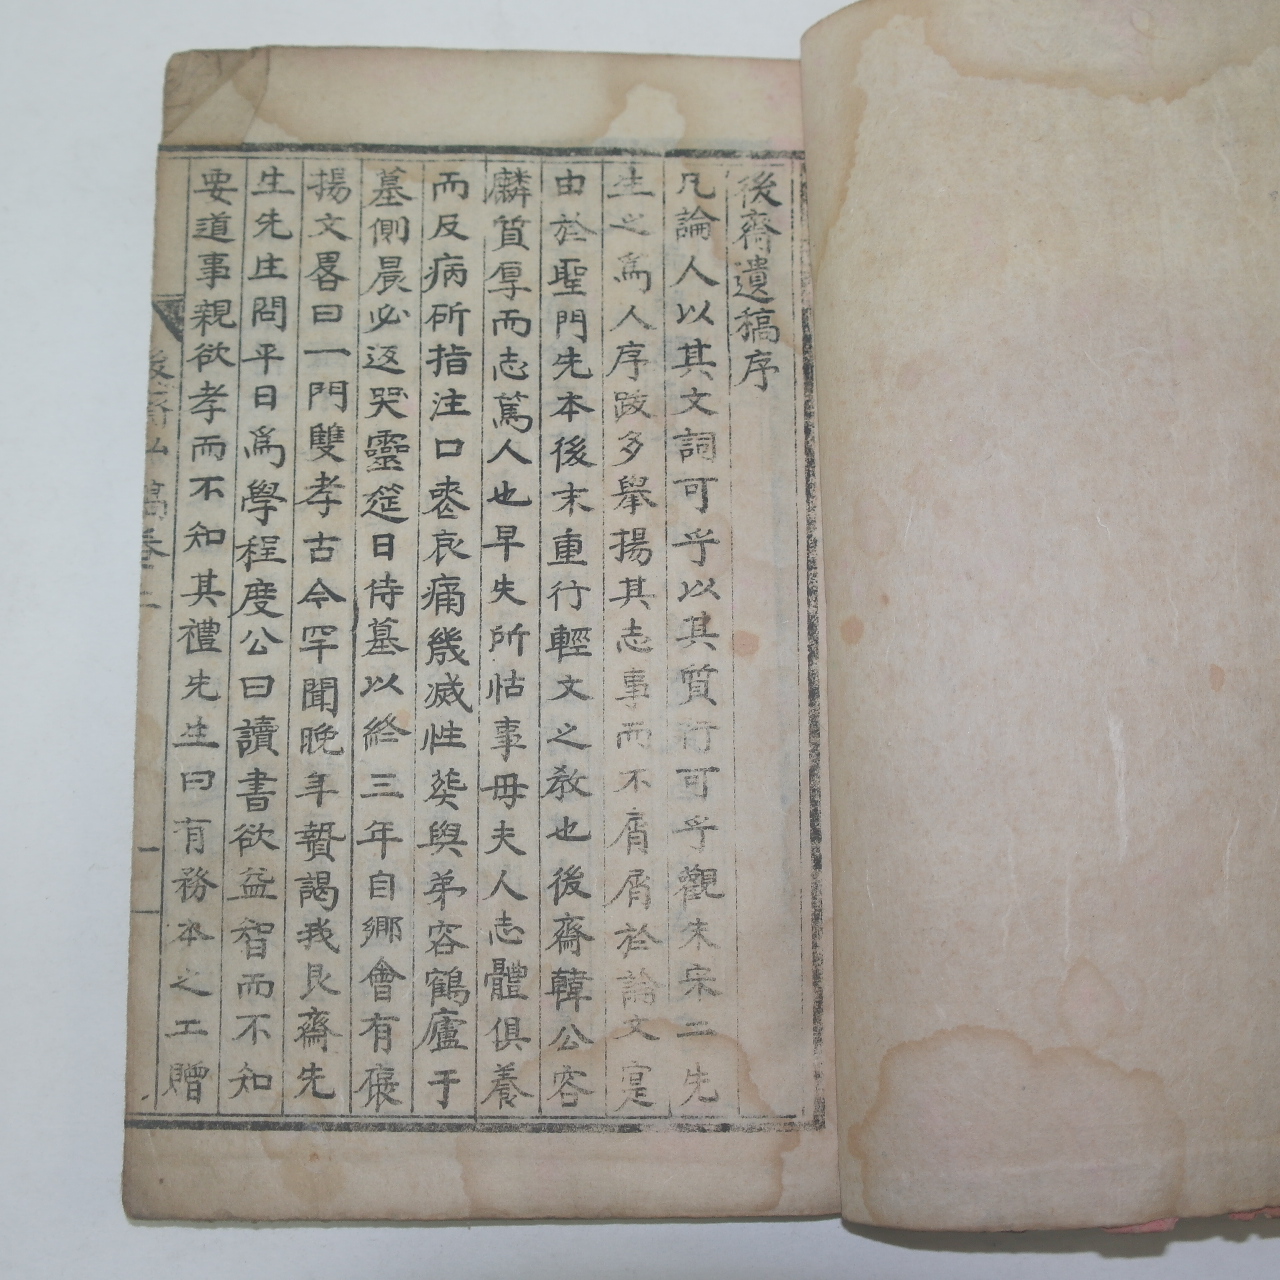 後齋遺稿序
凡論人以其文詞可乎以其質行可乎觀朱宋二先
生之爲人序跋多舉揚其志事而不屑屑於論文寔
由於聖門先本後末重行輕文之教也後齋韓公容
麟質厚而志篤人也早失所怙事母夫人志體俱養
而反病斫指注口喪哀痛幾滅性葬與弟容鶴廬于
墓側晨必返哭靈筵日侍墓以終三年自鄉會有襃
揚文畧曰一門雙孝古今罕聞晚年贄謁我艮齋先
生先生問平日爲學程度公曰讀書欲益智而不知
要道事親欲孝而不知其禮先生曰有務本之工贈
後齋 稿卷之 一